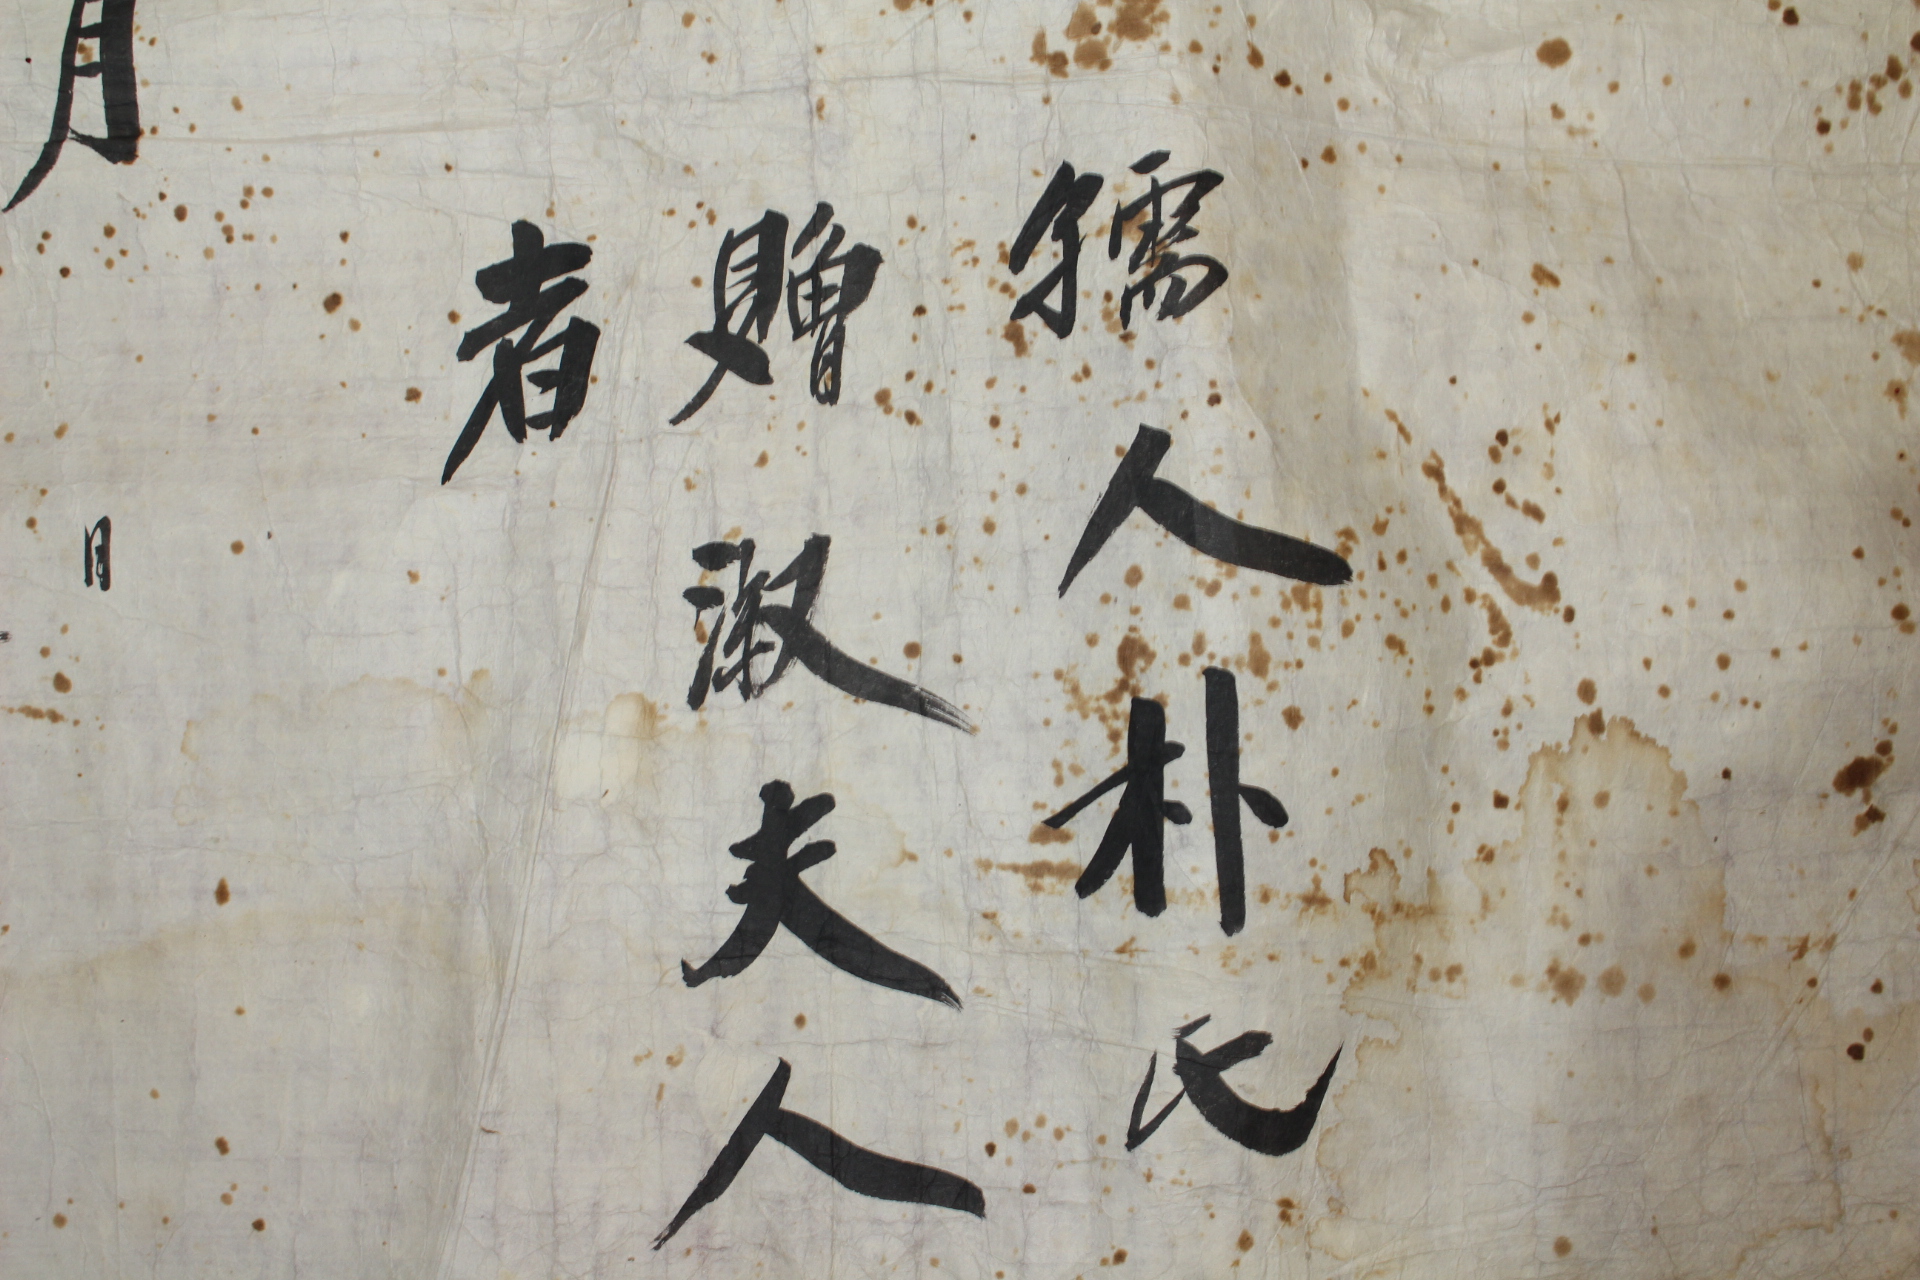 孺人朴氏
贈淑夫人
者
月
日